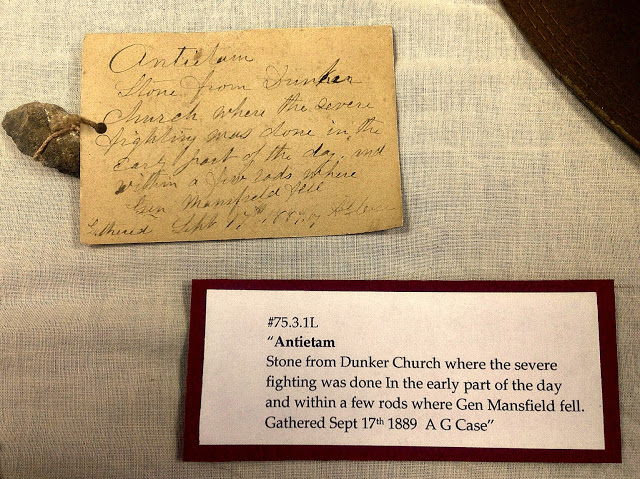 Antietam
Stone from Dunker
Church where the severe
fighting was done in the
Early part of the day. and
within a few rods where
Gen Mansfield fell
Gathered Sept 17th
#75.3.1L
"Antietam
Stone from Dunker Church where the severe
fighting was done In the early part of the day
and within a few rods where Gen Mansfield fell.
Gathered Sept 17th 1889 A G Case"